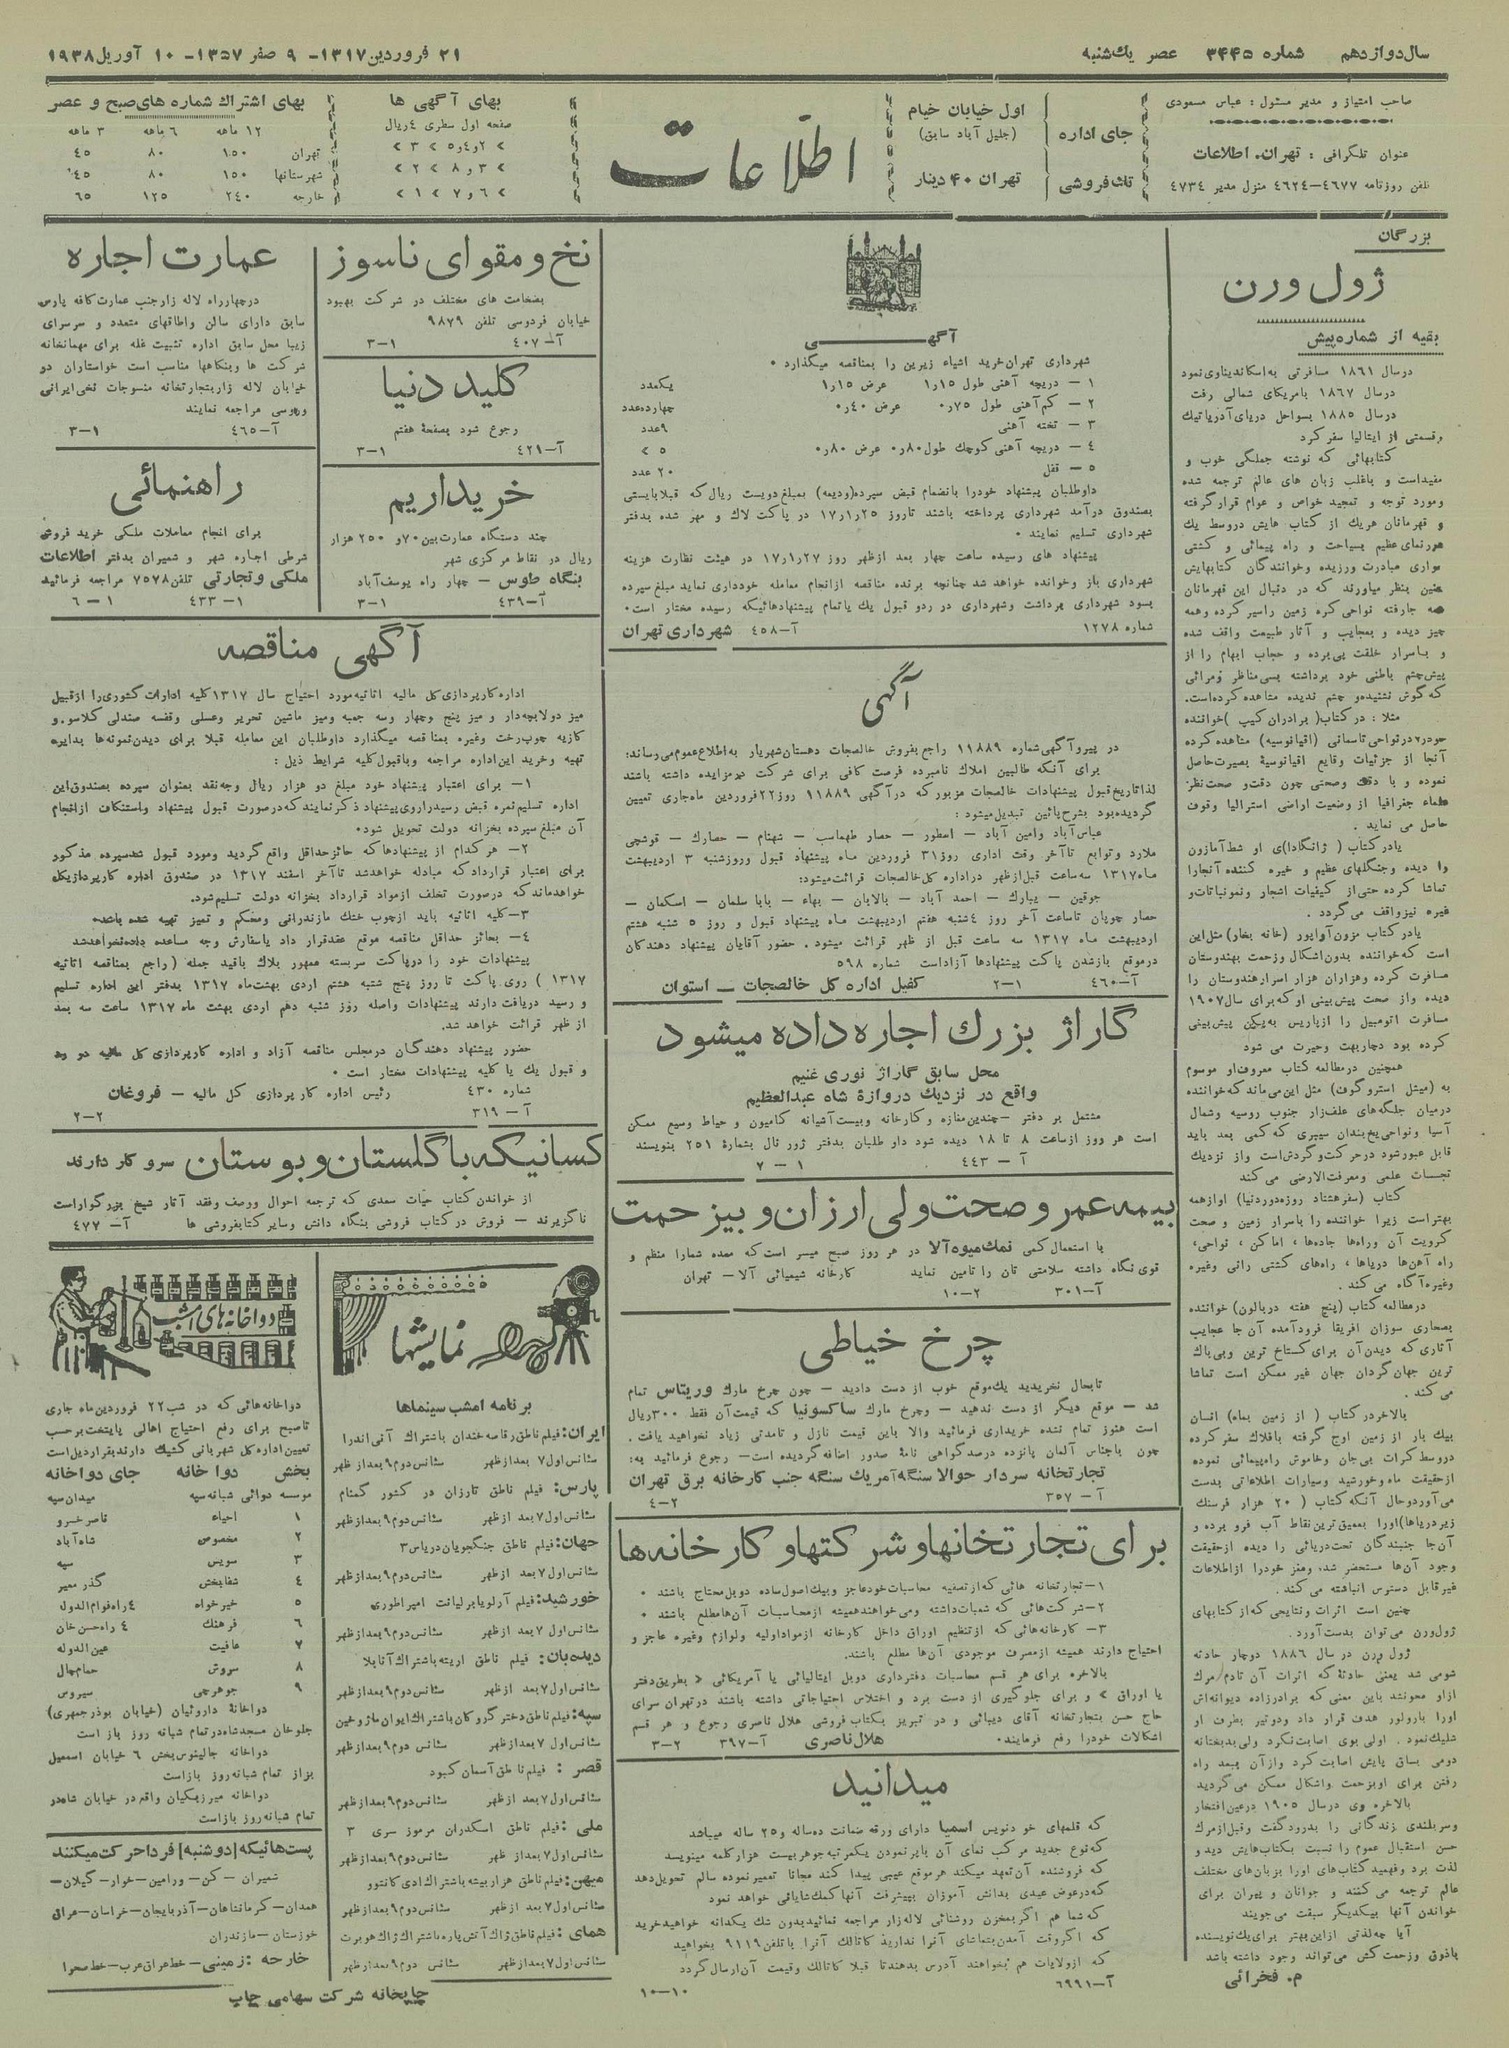 سال دوازدهم شماره ۳۴۴۵ عصر یك شنبه
۲۱ فروردین ۱۳۱۷- ۹ صفر ۱۳۵۷- ۱۰ آوریل ۱۹۳۸
صاحب امتیاز و مدیر مسئول : عباس مسعودی
عنوان تلگرافی : تهران. اطلاعات
تلفن روزنامه ۴۶۷۷-۴۶۲۴ منزل مدیر ۴۷۳۴
جای اداره
اول خیابان خیام
(جلیل آباد سابق)
تك فروشی
تهران ۴۰ دینار
اطلاعات
بهای آگهی ها
صفحه اول سطری ۴ ریال
> ۲ و ۴ و ۵ > ۳ >
> ۳ و ۸ > ۲ >
> ۶ و ۷ > ۱ >
بهای اشتراك شماره های صبح و عصر
۱۲ ماهه ۶ ماهه ۳ ماهه
تهران ۱۵۰ ۸۰ ۴۵
شهرستانها ۱۵۰ ۸۰ ۴۵
خارجه ۲۴۰ ۱۲۵ ۶۵
بزرگان
ژول ورن
بقیه از شماره پیش
درسال ۱۸۶۱ مسافرتی به اسکاندیناوی نمود
درسال ۱۸۶۷ بامریکای شمالی رفت
درسال ۱۸۸۵ بسواحل دریای آدریاتیك
وقسمتی از ایتالیا سفر کرد
کتابهائی که نوشته جملگی خوب و
مفیداست و باغلب زبان های عالم ترجمه شده
ومورد توجه و تمجید خواص و عوام قرار گرفته
و قهرمانان هریك از کتاب هایش دروسط یك
بسیاحت و راه پیمائی و کشتی
سواری مبادرت ورزیده وخوانندگان کتابهایش
چنین بنظر میاورند که در دنبال این قهرمانان
همه جا رفته نواحی کره زمین راسیر کرده وهمه
چیز دیده و بعجایب و آثار طبیعت واقف شده
و باسرار خلقت پی برده و حجاب ابهام را از
پیش چشم باطنی خود برداشته بسی مناظر ومرائی
که گوش نشنیده و چشم ندیده مشاهده کرده است.
مثلا : در کتاب( برادران کیپ )خواننده
خودرا درنواحی تاسمانی (اقیانوسیه) مشاهده کرده
آنجا از جزئیات وقایع اقیانوسیهٔ بصیرت حاصل
نموده و با دقت وصحتی چون دقت و صحت نظر
علماء جغرافیا از وضعیت اراضی استرالیا وقوف
حاصل می نماید .
یادر کتاب ( ژانگادا)ی او شط آمازون
را دیده وجنگلهای عظیم و خیره کننده آنجارا
تماشا کرده حتی از کیفیات اشجار ونموّنباتات و
غیره نیزواقف می گردد .
یادر کتاب مزون آواپور (خانه بخار) مثل این
است که خواننده بدون اشکال وزحمت بهندوستان
مسافرت کرده وهزاران هزار اسرارهندوستان را
دیده واز صحت پیش بینی او که برای سال ۱۹۰۷
مسافرت اتومبیل را ازپاریس به پکین پیش بینی
کرده بود دچاربهت وحیرت می شود
همچنین درمطالعه کتاب معروف او موسوم
به (میشل استروگوف) مثل این می ماند که خواننده
درمیان جلگه های علف زار جنوب روسیه وشمال
آسیا ونواحی یخ بندان سیبری که کمی بعد باید
قابل عبورشود درحرکت وگردش است واز نزدیك
تجسسات علمی ومعرفت الارضی می کند
کتاب (سفرهشتاد روزه دوردنیا) اوازهمه
بهتراست زیرا خواننده را باسرار زمین و صحت
کرویت آن وراه ها جاده ها ، اماکن ، نواحی،
راه آهن ها دریاها ، راه های کشتی رانی وغیره
وغیره آگاه می کند.
درمطالعه کتاب (پنج هفته دربالون) خواننده
بصحاری سوزان افریقا فرودآمده آن جا عجایب
آثاری که دیدن آن برای گستاخ ترین وبی باك
ترین جهان گردان جهان غیر ممکن است تماشا
می کند .
بالاخره در کتاب ( از زمین بماه) انسان
بیك بار از زمین اوج گرفته بافلاك سفر کرده
دروسط کرات بی جان وخاموش راه پیمائی نموده
ازحقیقت ماه وخورشید وسیارات اطلاعاتی بدست
می آورد وحال آنکه کتاب ( ۲۰ هزار فرسنك
زیردریاها)اورا بعمیق ترین نقاط آب فرو برده و
آن جا جنبندگان تحت دریائی را دیده ازحقیقت
وجود آن ها مستحضر شده ومغز خودرا ازاطلاعات
غیرقابل دسترس انباشته می کند.
چنین است اثرات ونتایجی که از کتابهای
ژول ورن می توان بدست آورد.
ژول ورن در سال ۱۸۸۶ دوچار حادثه
شومی شد یعنی حادثهٔ که اثرات آن تادم مرك
ازاو محونشد باین معنی که برادرزاده دیوانه اش
اورا بارولور هدف قرار داد ودوتیر بطرف او
شلیك نمود . اولی بوی اصابت نکرد ولی بدبختانه
دومی بساق پایش اصابت کرد وازآن ببعد راه
رفتن برای اوبزحمت واشکال ممکن می گردید
بالاخره وی درسال ۱۹۰۵ درعین افتخار
وسربلندی زندگانی را بدرودگفت وقبل ازمرك
حسن استقبال عموم را نسبت بکتاب هایش دید و
لذت برد وفهمید کتاب های اورا بزبان های مختلف
عالم ترجمه می کنند و جوانان و پیران برای
خواندن آنها بیکدیگر سبقت می جویند
آیا چه لذتی ازاین بهتر برای یك نویسنده
باذوق وزحمت کش می تواند وجود داشته باشد
م. فخرائی
آگهی
شهرداری تهران خرید اشیاء زیرین را بمناقصه میگذارد •
۱ - دریچه آهنی طول ۱٫۱۵ عرض ۱٫۱۵ یکعدد
۲ - کم آهنی طول ۰٫۷۵ عرض ۰٫۴۰ چهارده عدد
۳ - تخته آهنی ۹عدد
۴ - دریچه آهنی کوچك طول ۰٫۸۰ عرض ۰٫۸۰ ۵ >
۵ - قفل ۲۰ عدد
داوطلبان پیشنهاد خودرا بانضمام قبض سپرده(ودیعه) بمبلغ دویست ریال که قبلا بایستی
بصندوق درآمد شهرداری پرداخته باشند تا روز ۱۷٫۱٫۲۵ در پاکت لاك و مهر شده بدفتر
شهرداری تسلیم نمایند •
پیشنهاد های رسیده ساعت چهار بعد ازظهر روز ۱۷٫۱٫۲۷ در هیئت نظارت هزینه
شهرداری باز وخوانده خواهد شد چنانچه برنده مناقصه ازانجام معامله خودداری نماید مبلغ سپرده
بسود شهرداری برداشت وشهرداری در ردو قبول یك یاتمام پیشنهادهائیکه رسیده مختار است•
شماره ۱۲۷۸ آ-۴۵۸ شهرداری تهران
آگهی
در پیرو آگهی شماره ۱۱۸۸۹ راجع بفروش خالصجات دهستان شهریار به اطلاع عموم می رساند:
برای آنکه طالبین املاك نامبرده فرصت کافی برای شرکت در مزایده داشته باشند
لذا تاریخ قبول پیشنهادات خالصجات مزبور که در آگهی ۱۱۸۸۹ روز ۲۲ فروردین ماه جاری تعیین
گردیده بود بشرح پائین تبدیل میشود :
عباس آباد وامین آباد - اسطور - حصار طهماسب - شهنام - حصارك - قوشچی
ملارد وتوابع تا آخر وقت اداری روز ۳۱ فروردین ماه پیشنهاد قبول وروز شنبه ۳ اردیبهشت
ماه ۱۳۱۷ سه ساعت قبل از ظهر دراداره کل خالصجات قرائت میشود:
جوقین - بیارك - احمد آباد - بالابان - بهاء - بابا سلمان - اسکمان -
حصار چوپان تاساعت آخر روز ۴ شنبه هفتم اردیبهشت ماه پیشنهاد قبول و روز ۵ شنبه هشتم
اردیبهشت ماه ۱۳۱۷ سه ساعت قبل از ظهر قرائت میشود. حضور آقایان پیشنهاد دهندگان
درموقع بازشدن پاکت پیشنهادها آزاداست شماره ۵۹۸
آ-۴۶۰ ۲-۱ کفیل اداره کل خالصجات - استوان
گاراژ بزرك اجاره داده میشود
محل سابق گاراژ نوری غنیم
واقع در نزدیك دروازهٔ شاه عبدالعظیم
مشتمل بر دفتر -چندین مغازه و کارخانه وبیست آشیانه کامیون و حیاط وسیع ممکن
است هر روز از ساعت ۸ تا ۱۸ دیده شود داوطلبان بدفتر ژورنال بشمارهٔ ۲۵۱ بنویسند
آ - ۴۴۳ ۱ - ۷
بیمه عمر و صحت ولی ارزان و بیزحمت
با استعمال کمی نمك میوه آلا در هر روز صبح میسر است که معده شمارا منظم و
قوی نگاه داشته سلامتی تان را تامین نماید کارخانه شیمیائی آلا - تهران
آ-۳۰۱ ۲-۱۰
چرخ خیاطی
تابحال نخریدید یك موقع خوب از دست دادید - چون چرخ مارك وریتاس تمام
شد - موقع دیگر از دست ندهید - وچرخ مارك ساکسونیا که قیمت آن فقط ۳۰۰ریال
است هنوز تمام نشده خریداری فرمائید والا باین قیمت نازل و تامدتی زیاد نخواهید یافت.
چون باجناس آلمان پانزده درصدگواهی نامهٔ صدور اضافه گردیده است- رجوع فرمائید به:
تجارتخانه سردار حوالا سنگه آمریك سنگه جنب کارخانه برق تهران
آ - ۳۵۷ ۲-۴
برای تجارتخانها و شرکتها و کارخانه ها
۱-تجارتخانه هائی که از تصفیه محاسبات خود عاجز وبیك اصول ساده دوبل محتاج باشند •
۲-شرکت هائی که شعبات داشته ومی خواهند همیشه ازمحاسبات آن ها مطلع باشند •
۳- کارخانه هائی که ازتنظیم اوراق داخل کارخانه ازمواداولیه ولوازم وغیره عاجز و
احتیاج دارند همیشه ازمصرف موجودی آن ها مطلع باشند.
بالاخره برای هر قسم محاسبات دفترداری دوبل ایتالیائی یا آمریکائی < بطریق دفتر
یا اوراق > و برای جلوگیری از دست برد و اختلاس احتیاجاتی داشته باشند درتهران سرای
حاج حسن بتجارتخانه آقای دیبائی و در تبریز بکتاب فروشی هلال ناصری رجوع و هر قسم
اشکالات خودرا رفع فرمایند• هلال ناصری آ-۳۹۷ ۲-۳
میدانید
که قلمهای خودنویس اسمیا دارای ورقه ضمانت ده ساله و ۲۵ ساله میباشد
که نوع جدید مرکب نمای آن باپرنمودن یکمرتبه جوهر بیست هزار کلمه مینویسد
که فروشنده آن تعهد میکند هرموقع عیبی پیدا کند مجانا تعمیر نموده سالم تحویل دهد
که درعوض عیدی بدانش آموزان بپیشرفت آنها کمك شایانی خواهد نمود
که شما هم اگر بمخزن روشنائی لاله زار مراجعه نمائید بدون شك یکدانه خواهید خرید
که اگر وقت آمدن بتماشای آنرا ندارید کاتالك آنرا باتلفن ۹۱۱۹ بخواهید
که ازولایات هم بخواهند آدرس بدهند تا قبلا کاتالك وقیمت آن ارسال گردد
آ-۶۹۹۱ ۱۰-۱۰
نخ و مقوای ناسوز
بضخامت های مختلف در شرکت بهبود
خیابان فردوسی تلفن ۹۸۷۹
آ-۴۰۷ ۱-۳
کلید دنیا
رجوع شود بصفحهٔ هفتم
آ-۴۲۹ ۱-۳
خریداریم
چند دستگاه عمارت بین ۷۰ و ۲۵۰ هزار
ریال در نقاط مرکزی شهر
بنگاه طوس - چهار راه یوسف آباد
آ-۴۳۹ ۱-۳
عمارت اجاره
درچهارراه لاله زار جنب عمارت کافه پارس
سابق دارای سالن واطاقهای متعدد و سرسرای
زیبا محل سابق اداره تثبیت غله برای مهمانخانه
شرکت ها وبنگاهها مناسب است خواستاران در
خیابان لاله زار بتجارتخانه منسوجات نخی ایرانی
وروسی مراجعه نمایند
آ-۴۶۵ ۱-۳
راهنمائی
برای انجام معاملات ملکی خرید فروش
شرطی اجاره شهر و شمیران بدفتر اطلاعات
ملکی و تجارتی تلفن ۷۵۷۸ مراجعه فرمائید
۱-۴۳۳ ۱-۶
آگهی مناقصه
اداره کارپردازی کل مالیه اثاثیه مورد احتیاج سال ۱۳۱۷ کلیه ادارات کشوری را ازقبیل
میز دولابچه دار و میز پنج وچهار وسه جعبه ومیز ماشین تحریر وعسلی وقفسه صندلی کلاسور و
کازیه چوب رخت وغیره بمناقصه میگذارد داوطلبان این معامله قبلا برای دیدن نمونه ها بدایره
تهیه وخرید این اداره مراجعه وباقبول کلیه شرایط ذیل :
۱- برای اعتبار پیشنهاد خود مبلغ دو هزار ریال وجه نقد بعنوان سپرده بصندوق این
اداره تسلیم نمره قبض رسید را روی پیشنهاد ذکر نمایند که درصورت قبول پیشنهاد واستنکاف از انجام
آن مبلغ سپرده بخزانه دولت تحویل شود•
۲- هر کدام از پیشنهادها که حائز حداقل واقع گردید ومورد قبول شد سپرده مذکور
برای اعتبار قرارداد که مبادله خواهد شد تا آخر اسفند ۱۳۱۷ در صندوق اداره کارپردازی کل
خواهد ماند که درصورت تخلف ازمواد قرارداد بخزانه دولت تسلیم شود.
۳-کلیه اثاثیه باید ازچوب خشك مازندرانی ومحکم و تمیز تهیه شده باشد•
۴- بحائز حداقل مناقصه موقع عقدقرار داد یاسفارش وجه مساعده داده نخواهد شد
پیشنهادات خود را درپاکت سربسته ممهور بلاك باقید جمله (راجع بمناقصه اثاثیه
۱۳۱۷ ) روی پاکت تا روز پنج شنبه هشتم اردی بهشت ماه ۱۳۱۷ بدفتر این اداره تسلیم
و رسید دریافت دارند پیشنهادات واصله روز شنبه دهم اردی بهشت ماه ۱۳۱۷ ساعت سه بعد
از ظهر قرائت خواهد شد.
حضور پیشنهاد دهندگان درمجلس مناقصه آزاد و اداره کارپردازی کل مالیه در رد
و قبول یك یا کلیه پیشنهادات مختار است •
شماره ۴۳۰ رئیس اداره کارپردازی کل مالیه - فروغان
آ - ۳۱۹ ۲-۲
کسانیکه با گلستان و بوستان سر و کار دارند
از خواندن کتاب حیات سعدی که ترجمه احوال ووصف ونقد آثار شیخ بزرگوار است
ناگزیرند - فروش در کتاب فروشی بنگاه دانش وسایر کتابفروشی ها آ-۴۷۷
نمایشها
برنامه امشب سینماها
ایران:فیلم ناطق رقاصه خندان باشتراك آنی اندرا
سئانس اول ۷ بعداز ظهر سئانس دوم ۹ بعداز ظهر
پارس: فیلم ناطق تارزان در کشور گمنام
سئانس اول ۷ بعد از ظهر سئانس دوم ۹ بعداز ظهر
جهان:فیلم ناطق جنگجویان دریا س ۳
سئانس اول ۷ بعد ازظهر سئانس دوم ۹ بعداز ظهر
خورشید:فیلم آرلو یا برلیانت امپراطوری
سئانس اول ۷ بعد از ظهر سئانس دوم ۹ بعداز ظهر
دیده بان: فیلم ناطق اریته باشتراك آنابلا
سئانس اول ۷ بعد از ظهر سئانس دوم ۹ بعداز ظهر
سپه: فیلم ناطق دختر گروگان باشتراك ایوان ماژوخین
سئانس اول ۷ بعداز ظهر سئانس دوم ۹ بعداز ظهر
قصر : فیلم ناطق آسمان کبود
سئانس اول ۷ بعد از ظهر سئانس دوم ۹ بعداز ظهر
ملی :فیلم ناطق اسکدران مرموز سری ۳
سئانس اول ۷ بعداز ظهر سئانس دوم ۹ بعداز ظهر
میهن: فیلم ناطق هزار بیشه باشتراك ادی کانتور
سئانس اول ۷ بعد از ظهر سئانس دوم ۹ بعداز ظهر
همای: فیلم ناطق ژاك آتش پاره باشتراك ژاك هوبرت
سئانس اول ۷ بعداز ظهر سئانس دوم ۹ بعداز ظهر
دواخانه های امشب
دواخانه هائی که در شب ۲۲ فروردین ماه جاری
تاصبح برای رفع احتیاج اهالی پایتخت برحسب
تعیین اداره کل شهربانی کشیك دارند بقرار ذیل است
بخش دواخانه جای دواخانه
موسسه دوائی شبانه سپه میدان سپه
۱ احیاء ناصرخسرو
۲ مخصوص شاه آباد
۳ سویس سپه
۴ شفابخش گذر معیر
۵ خیرخواه ۴ راه قوام الدوله
۶ فرهنك ۴ راه حسن خان
۷ عافیت عین الدوله
۸ سروش حمام چال
۹ جوهرچی سیروس
دواخانهٔ داروئیان (خیابان بوذرجمهری)
جلوخان مسجد شاه در تمام شبانه روز باز است
دواخانه جالینوس بخش ۶ خیابان اسمعیل
بزاز تمام شبانه روز بازاست
دواخانه میرزیکیان واقع در خیابان شاه در
تمام شبانه روز بازاست
پست هائیکه [دوشنبه] فردا حرکت میکنند
شمیران - کن - ورامین - خوار - گیلان -
همدان- کرمانشاهان- آذربایجان- خراسان- عراق
خوزستان - مازندران
خارجه : زمینی- خط عراق عرب- خط صحرا
چاپخانه شرکت سهامی چاپ